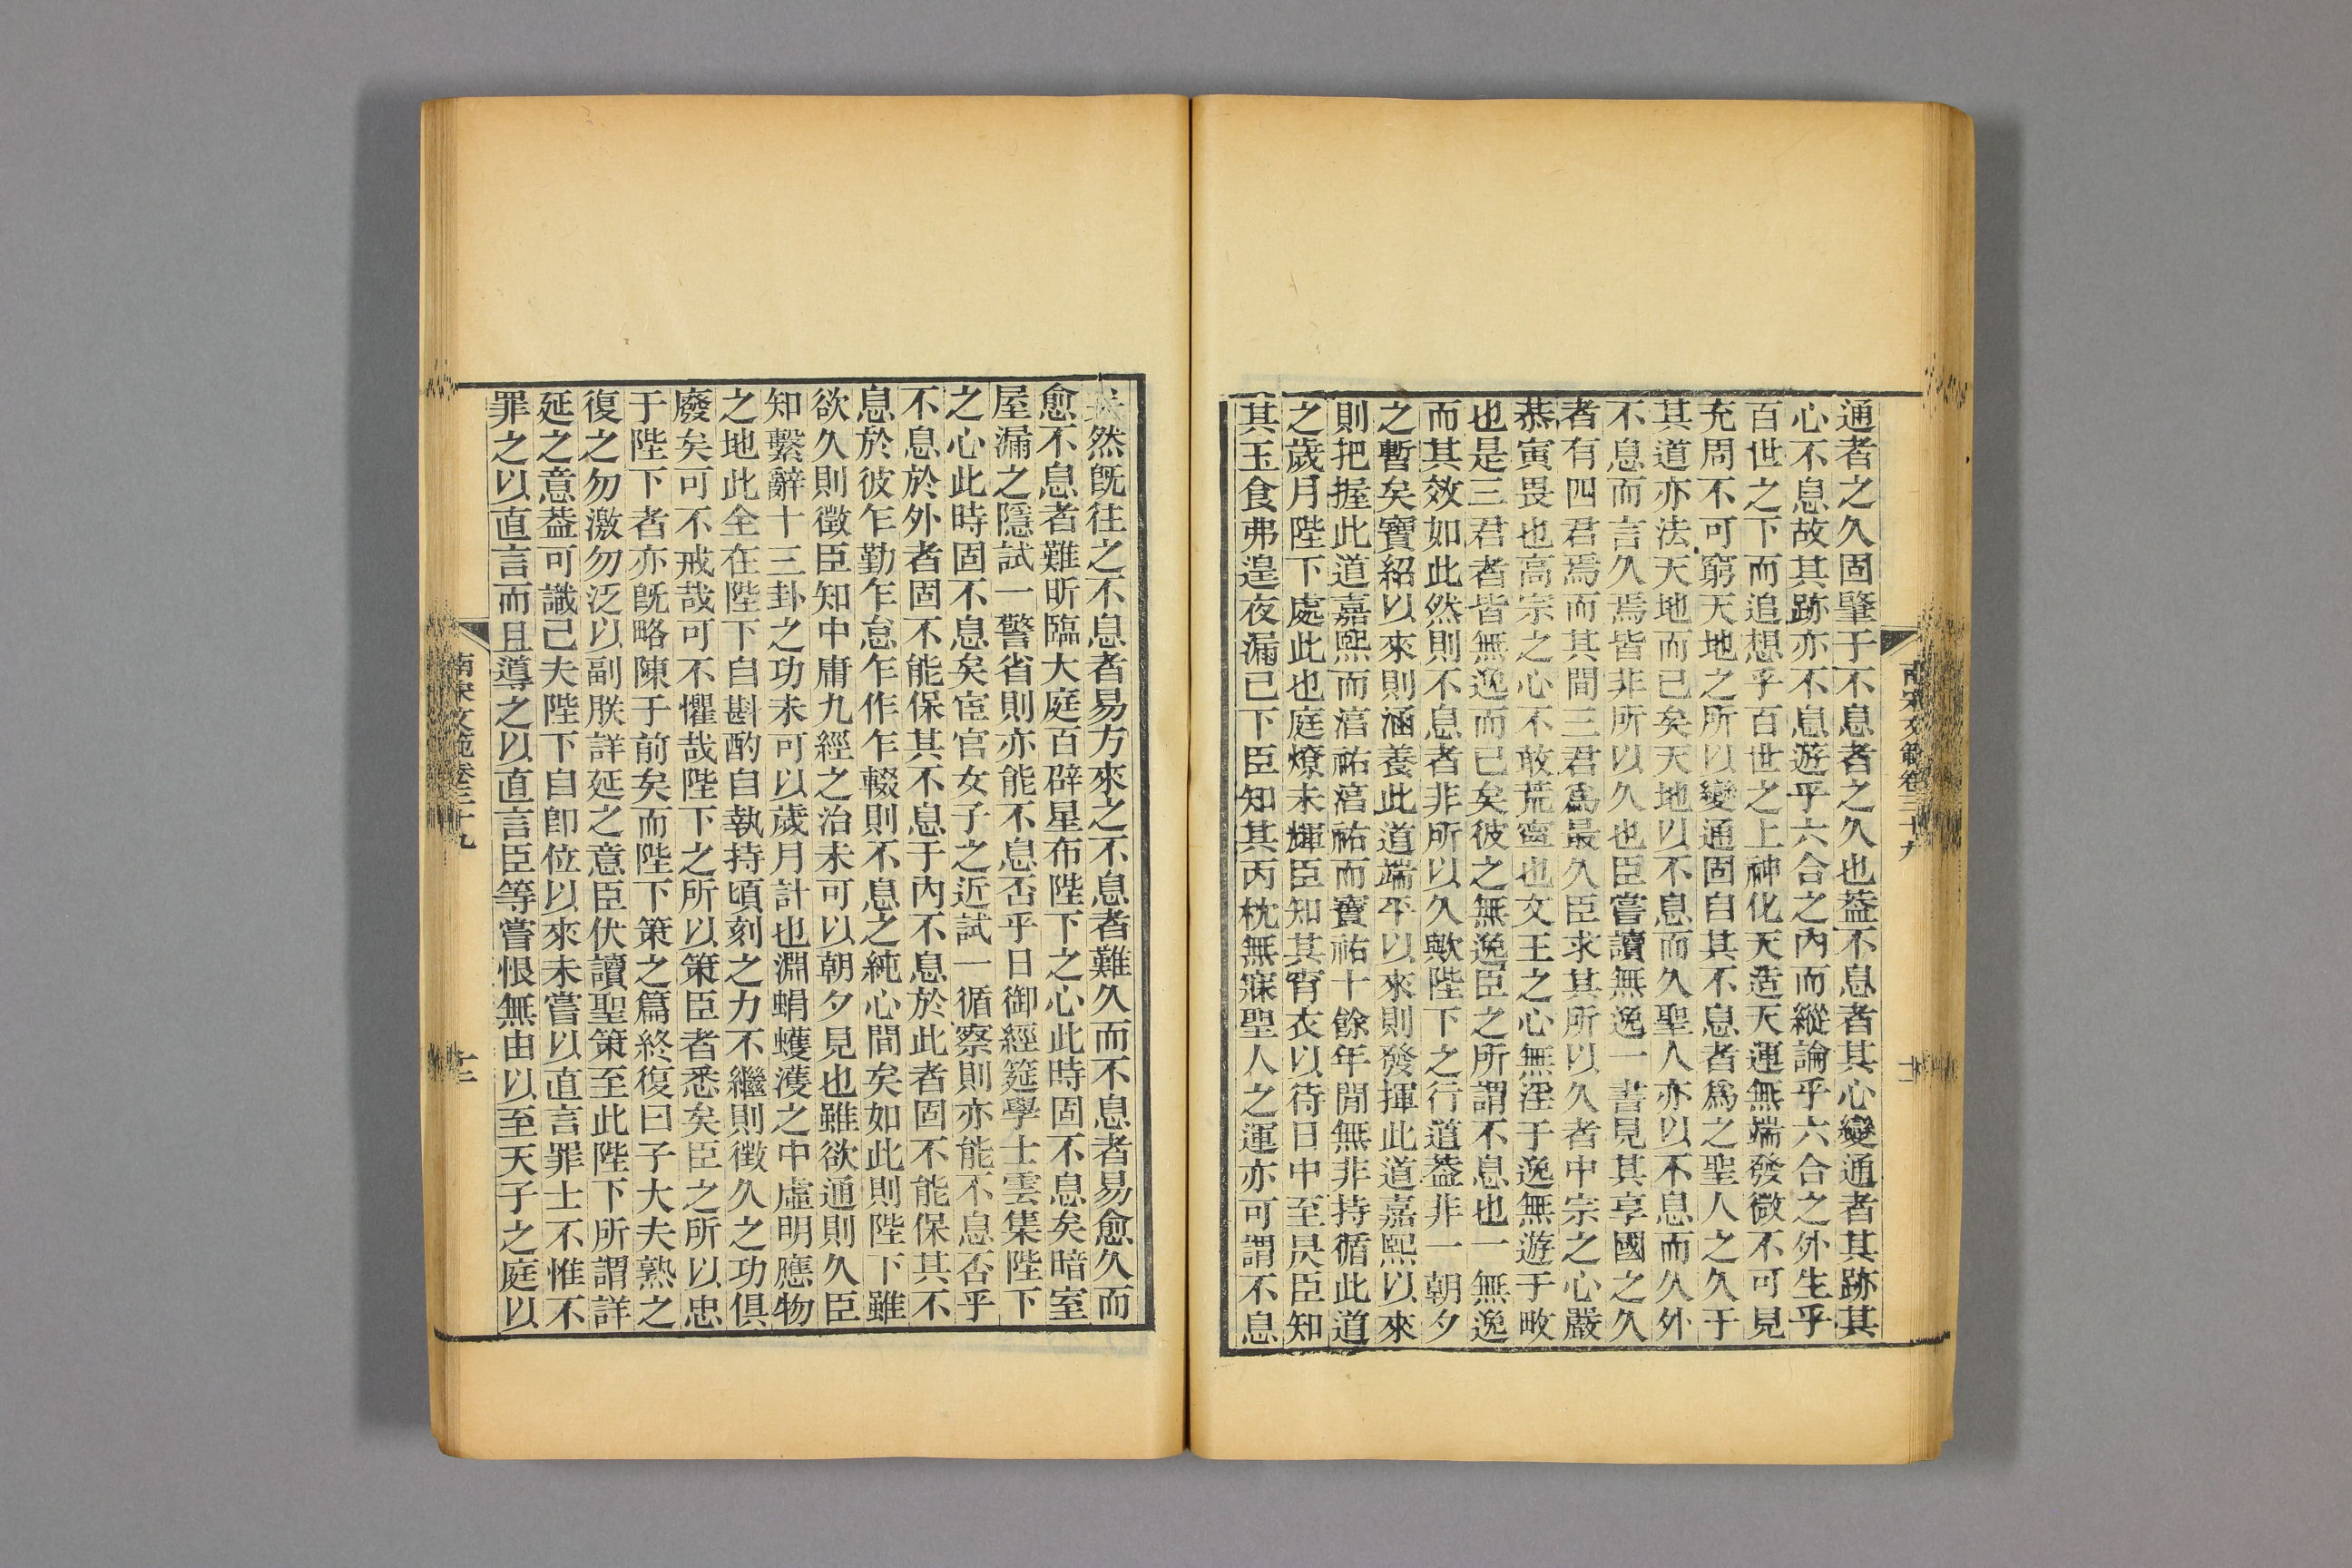 南宋文範卷三十九
十一
通者之久固肇于不息者之久也葢不息者其心變通者其跡其
心不息故其跡亦不息遊乎六合之內而縱論乎六合之外生乎
百世之下而追想乎百世之上神化天造天運無端發微不可見
充周不可窮天地之所以變通固自其不息者爲之聖人之久于
其道亦法天地而已矣天地以不息而久聖人亦以不息而久外
不息而言久焉皆非所以久也臣嘗讀無逸一書見其享國之久
者有四君焉而其間三君爲最久臣求其所以久者中宗之心嚴
恭寅畏也高宗之心不敢荒寧也文王之心無淫于逸無遊于畋
也是三君者皆無逸而已矣彼之無逸臣之所謂不息也一無逸
而其效如此然則不息者非所以久歟陛下之行道葢非一朝夕
之暫矣寶紹以來則涵養此道端平以來則發揮此道嘉熙以來
則把握此道嘉熙而淳祐淳祐而寶祐十餘年閒無非持循此道
之歲月陛下處此也庭燎未輝臣知其宵衣以待日中至昃臣知
其玉食弗遑夜漏已下臣知其丙枕無寐聖人之運亦可謂不息
矣然旣往之不息者易方來之不息者難久而不息者易愈久而
愈不息者難昕臨大庭百辟星布陛下之心此時固不息矣暗室
屋漏之隱試一警省則亦能不息否乎日御經筵學士雲集陛下
之心此時固不息矣宦官女子之近試一循察則亦能不息否乎
不息於外者固不能保其不息于內不息於此者固不能保其不
息於彼乍勤乍怠乍作乍輟則不息之純心間矣如此則陛下雖
欲久則徵臣知中庸九經之治未可以朝夕見也雖欲通則久臣
知繫辭十三卦之功未可以歲月計也淵蜎蠖濩之中虛明應物
之地此全在陛下自斟酌自執持頃刻之力不繼則徵久之功俱
廢矣可不戒哉可不懼哉陛下之所以策臣者悉矣臣之所以忠
于陛下者亦旣略陳于前矣而陛下策之篇終復曰子大夫熟之
復之勿激勿泛以副朕詳延之意臣伏讀聖策至此陛下所謂詳
延之意葢可識已夫陛下自卽位以來未嘗以直言罪士不惟不
罪之以直言而且導之以直言臣等嘗恨無由以至天子之庭以
南宋文範卷三十九
十二